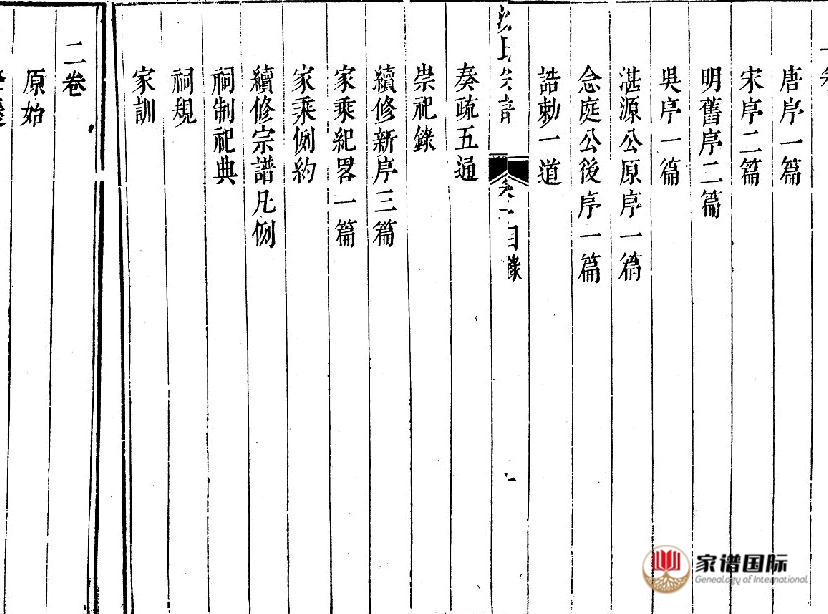 唐序一篇
宋序二篇
明舊序二篇
吳序一篇
湛源公原序一篇
念庭公後序一篇
誥勅一道
目錄
奏疏五通
崇祀錄
續修新序三篇
家乘紀畧一篇
家乘例約
續修宗譜凡例
祠制祀典
祠規
家訓
二卷
原始
家谱国际
Genealogy of International